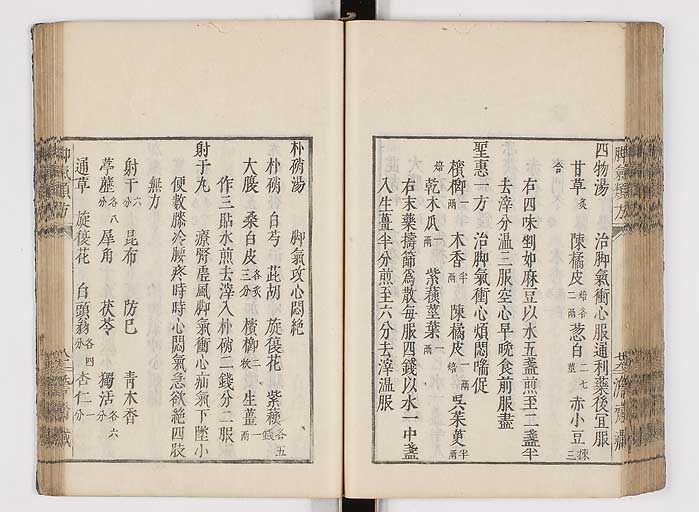 四物湯 治脚氣衝心服通利藥後宜服
甘草炙 陳橘皮焙各二兩 葱白二七莖 赤小豆三
右四味剉如麻豆以水五盞煎至二盞半
去滓分温三服空心早晩食前服盡
聖惠一方 治脚氣衝心煩悶喘促
檳榔一兩 木香半兩 陳橘皮一兩焙 吳茱萸半兩
乾木瓜一兩焙 紫蘇莖葉一兩
右末藥擣篩爲散每服四錢以水一中盞
入生薑半分煎至六分去滓温服
朴硝湯 脚氣攻心悶絶
朴硝 白芍 茈胡 旋復花 紫蘇各五錢
大腹五 桑白皮各炙三分 檳榔二枚 生薑一兩
作三貼水煎去滓入朴硝二錢分二服
射干丸 療腎虛風脚氣衝心疝氣下墜小
便數膝冷腰疼時時心悶氣急欲絶四肢
無力
射干六分 昆布 防巳 青木香
葶藶各八分 犀角 茯苓 獨活各六分
通草 旋復花 白頭翁各四分 杏仁一分